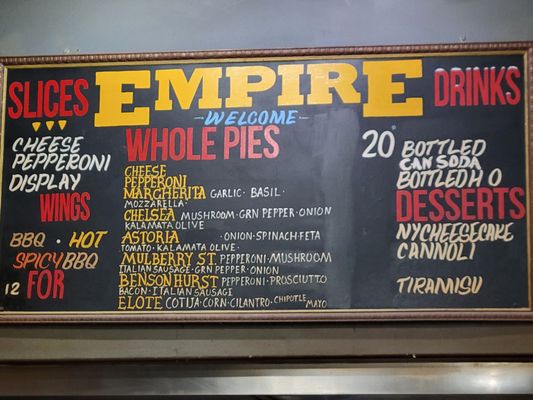 SLICES
CHEESE
PEPPERONI
DISPLAY
WINGS
BBQ · HOT
SPICY BBQ
12 FOR
EMPIRE
WELCOME
WHOLE PIES
CHEESE
PEPPERONI
MARGHERITA GARLIC · BASIL ·
MOZZARELLA ·
CHELSEA MUSHROOM · GRN PEPPER · ONION
KALAMATA OLIVE
ASTORIA · ONION · SPINACH · FETA
TOMATO · KALAMATA OLIVE ·
MULBERRY ST. PEPPERONI · MUSHROOM
ITALIAN SAUSAGE · GRN PEPPER · ONION
BENSONHURST PEPPERONI · PROSCIUTTO
BACON · ITALIAN SAUSAGE
ELOTE COTIJA · CORN · CILANTRO · CHIPOTLE MAYO
DRINKS
20° BOTTLED
CAN SODA
BOTTLED H O
DESSERTS
NY CHEESECAKE
CANNOLI
TIRAMISU